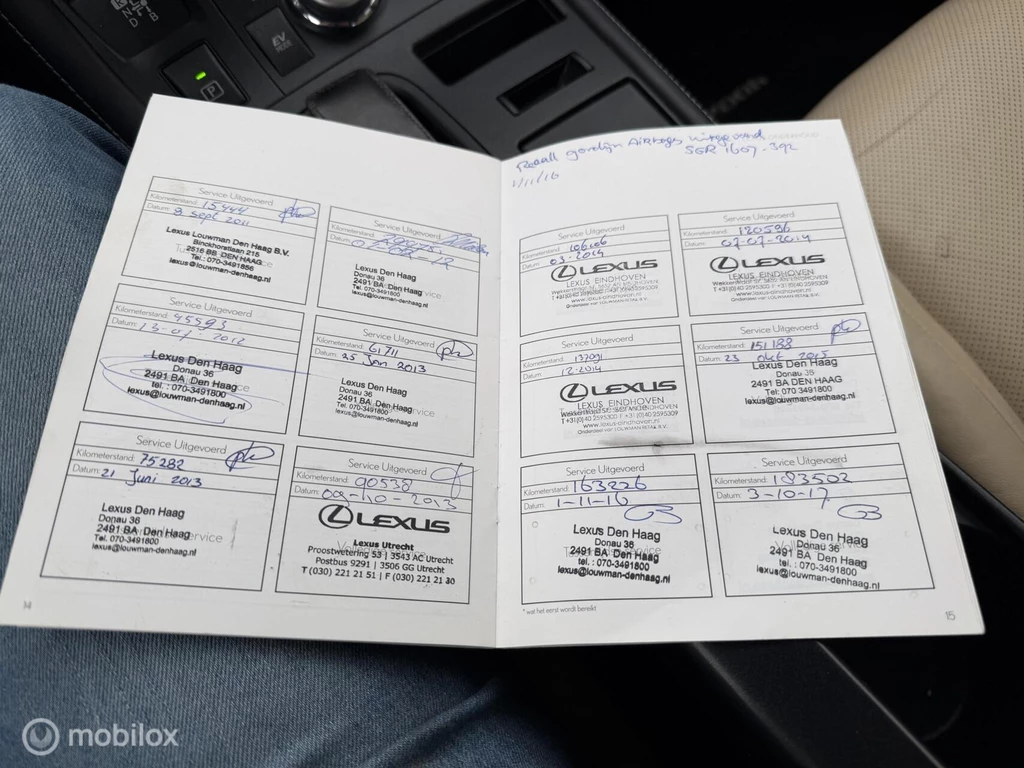 EV
MODE
P
Recall gordijn Airbags uitgevoerd
SGR 1607-392
1/11/16
Service Uitgevoerd
Kilometerstand: 15444
Datum: 8 sept 2011
Lexus Louwman Den Haag B.V.
Binckhorstlaan 215
2516 BB DEN HAAG
Tel.: 070-3491856
lexus@louwman-denhaag.nl
Service Uitgevoerd
Kilometerstand:
Datum:
Lexus Den Haag
Donau 36
2491 BA Den Haag
Tel.: 070-3491800
lexus@louwman-denhaag.nl
Service Uitgevoerd
Kilometerstand: 45593
Datum: 13-07-2012
Lexus Den Haag
Donau 36
2491 BA Den Haag
tel.: 070-3491800
lexus@louwman-denhaag.nl
Service Uitgevoerd
Kilometerstand: 61711
Datum: 25 Jan 2013
Lexus Den Haag
Donau 36
2491 BA Den Haag
Tel.: 070-3491800
lexus@louwman-denhaag.nl
Service Uitgevoerd
Kilometerstand: 75282
Datum: 21 Juni 2013
Lexus Den Haag
Donau 36
2491 BA Den Haag
Tel.: 070-3491800
lexus@louwman-denhaag.nl
Service Uitgevoerd
Kilometerstand: 90538
Datum: 09-10-2013
LEXUS
Lexus Utrecht
Proostwetering 53 | 3543 AC Utrecht
Postbus 9291 | 3506 GG Utrecht
T (030) 221 21 51 | F (030) 221 21 30
14
Service Uitgevoerd
Kilometerstand: 106106
Datum: 03-2014
LEXUS
LEXUS EINDHOVEN
T +31(0)40 2595300 F +31(0)40 2595309
www.lexus-eindhoven.nl
Onderdeel van LOUWMAN RETAIL B.V.
Service Uitgevoerd
Kilometerstand: 120596
Datum: 07-07-2014
LEXUS
LEXUS EINDHOVEN
T +31(0)40 2595300 F +31(0)40 2595309
www.lexus-eindhoven.nl
Onderdeel van LOUWMAN RETAIL B.V.
Service Uitgevoerd
Kilometerstand: 137091
Datum: 12-2014
LEXUS
LEXUS EINDHOVEN
T +31(0)40 2595300 F +31(0)40 2595309
www.lexus-eindhoven.nl
Onderdeel van LOUWMAN RETAIL B.V.
Service Uitgevoerd
Kilometerstand: 151188
Datum: 23 okt 2015
Lexus Den Haag
Donau 36
2491 BA DEN HAAG
tel.: 070-3491800
lexus@louwman-denhaag.nl
Service Uitgevoerd
Kilometerstand: 163226
Datum: 1-11-16
Lexus Den Haag
Donau 36
2491 BA Den Haag
tel.: 070-3491800
lexus@louwman-denhaag.nl
Service Uitgevoerd
Kilometerstand: 183502
Datum: 3-10-17
Lexus Den Haag
Donau 36
2491 BA Den Haag
tel.: 070-3491800
lexus@louwman-denhaag.nl
* wat het eerst wordt bereikt
15
mobilox